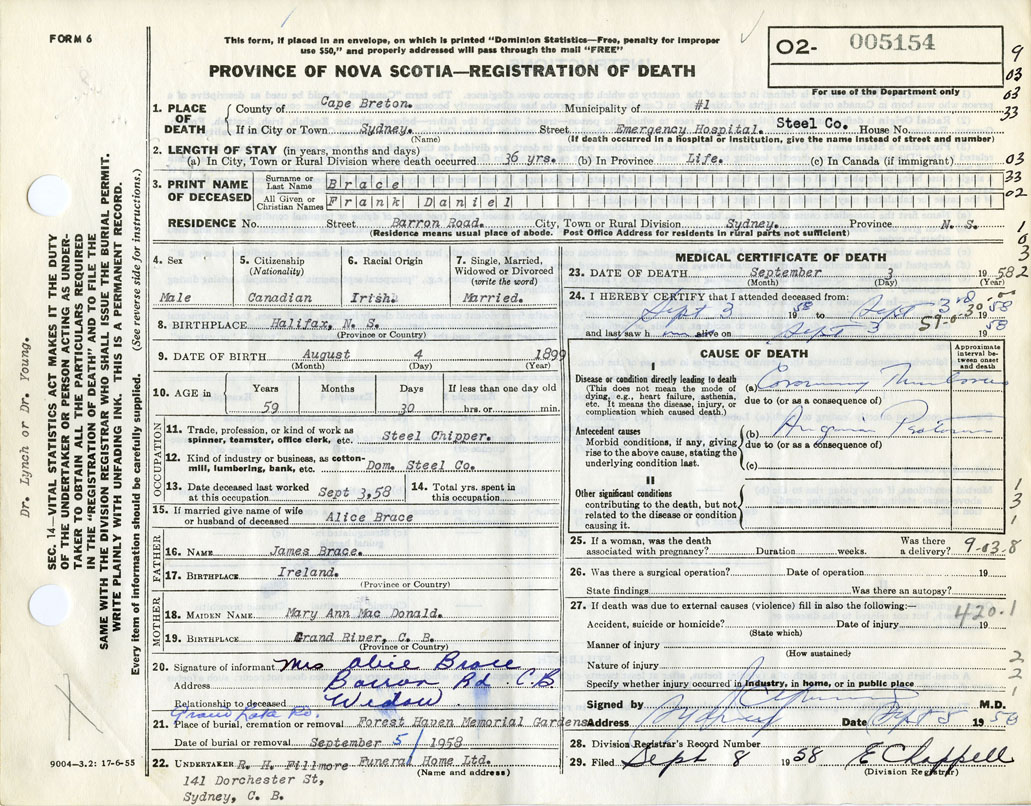 FORM 6
This form, if placed in an envelope, on which is printed "Dominion Statistics—Free, penalty for improper
use $50," and properly addressed will pass through the mail "FREE"
O2- 005154
For use of the Department only
PROVINCE OF NOVA SCOTIA—REGISTRATION OF DEATH
9
03
03
33
1. PLACE OF DEATH
County of Cape Breton. Municipality of #1
If in City or Town Sydney. Street Emergency Hospital. Steel Co. House No.
(Name) (If death occurred in a hospital or Institution, give the name Instead of street and number)
2. LENGTH OF STAY (in years, months and days)
(a) In City, Town or Rural Division where death occurred 36 yrs. (b) In Province Life. (c) In Canada (if immigrant)
03
33
02
3. PRINT NAME OF DECEASED
Surname or Last Name Brace
All Given or Christian Names Frank Daniel
RESIDENCE No. Street Barron Road. City, Town or Rural Division Sydney. Province N. S.
(Residence means usual place of abode. Post Office Address for residents in rural parts not sufficient)
4. Sex
Male
5. Citizenship
(Nationality)
Canadian
6. Racial Origin
Irish.
7. Single, Married,
Widowed or Divorced
(write the word)
Married.
8. BIRTHPLACE Halifax, N. S.
(Province or Country)
9. DATE OF BIRTH August 4 1899
(Month) (Day) (Year)
10. AGE in
Years Months Days If less than one day old
59 30 hrs. or min.
OCCUPATION
11. Trade, profession, or kind of work as
spinner, teamster, office clerk, etc. Steel Chipper.
12. Kind of industry or business, as cotton-
mill, lumbering, bank, etc. Dom. Steel Co.
13. Date deceased last worked
at this occupation Sept 3,58
14. Total yrs. spent in
this occupation
15. If married give name of wife
or husband of deceased Alice Brace
FATHER
16. NAME James Brace.
17. BIRTHPLACE Ireland.
(Province or Country)
MOTHER
18. MAIDEN NAME Mary Ann Mac Donald.
19. BIRTHPLACE Grand River, C. B.
(Province or Country)
20. Signature of informant Mrs Alice Brace
Address Barron Rd C.B.
Relationship to deceased Widow
Grand Lake Rd.
21. Place of burial, cremation or removal Forest Haven Memorial Gardens
Date of burial or removal September 5/ 1958
22. UNDERTAKER R. H. Fillmore Funeral Home Ltd.
(Name and address)
141 Dorchester St,
Sydney, C. B.
MEDICAL CERTIFICATE OF DEATH
23. DATE OF DEATH September 3 1958
(Month) (Day) (Year)
24. I HEREBY CERTIFY that I attended deceased from:
Sept 3 1958 to Sept 3rd 1958
and last saw h im alive on Sept 3 1958
59-0-30
CAUSE OF DEATH
Approximate
interval be-
tween onset
and death
I
Disease or condition directly leading to death
(This does not mean the mode of
dying, e.g., heart failure, asthenia,
etc. It means the disease, injury, or
complication which caused death.)
(a) Coronary Thrombosis
due to (or as a consequence of)
Antecedent causes
Morbid conditions, if any, giving
rise to the above cause, stating the
underlying condition last.
(b) Angina Pectoris
due to (or as a consequence of)
(c)
II
Other significant conditions
contributing to the death, but not
related to the disease or condition
causing it.
1
3
1
25. If a woman, was the death
associated with pregnancy? Duration weeks. Was there
a delivery?
9-03-8
26. Was there a surgical operation? Date of operation 19
State findings Was there an autopsy?
27. If death was due to external causes (violence) fill in also the following:—
420.1
Accident, suicide or homicide? Date of injury 19
(State which)
Manner of injury
(How sustained)
Nature of injury
Specify whether injury occurred in industry, in home, or in public place
2
2
1
Signed by M.D.
Address Sydney Date Sept 5 1958
28. Division Registrar's Record Number
29. Filed Sept 8 1958 E Chappell
(Division Registrar)
Dr. Lynch or Dr. Young.
SEC. 14—VITAL STATISTICS ACT MAKES IT THE DUTY
OF THE UNDERTAKER OR PERSON ACTING AS UNDER-
TAKER TO OBTAIN ALL THE PARTICULARS REQUIRED
IN THE "REGISTRATION OF DEATH" AND TO FILE THE
SAME WITH THE DIVISION REGISTRAR WHO SHALL ISSUE THE BURIAL PERMIT.
WRITE PLAINLY WITH UNFADING INK. THIS IS A PERMANENT RECORD.
Every item of information should be carefully supplied. (See reverse side for instructions.)
9004—3.2: 17-6-55